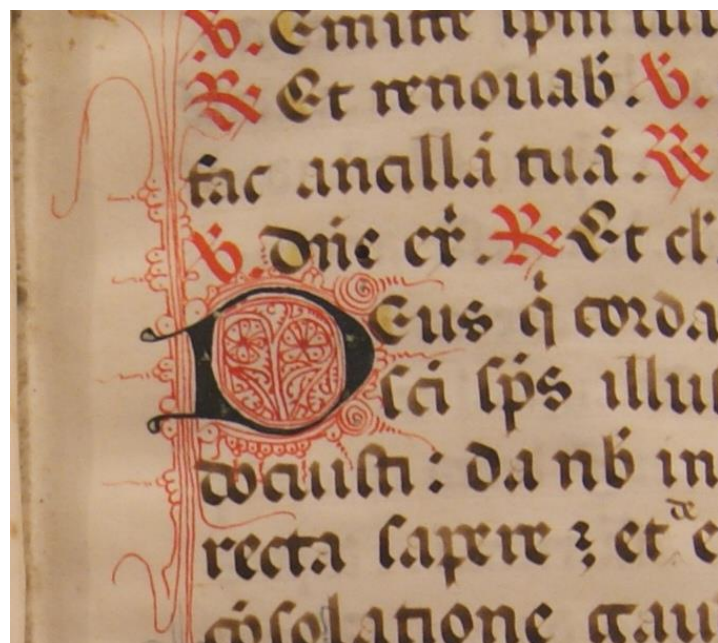 ℣. Emitte spm tuu
℟ Et renouab̄. ℣.
fac ancillā tuā. ℟
℣. dn̄e ex̄. ℟ Et cl
Deus q̄ corda
sc̄i sp̄s illus
docuisti: da nb̄ in
recta sapere ⁊ et de e
cōsolatione gau